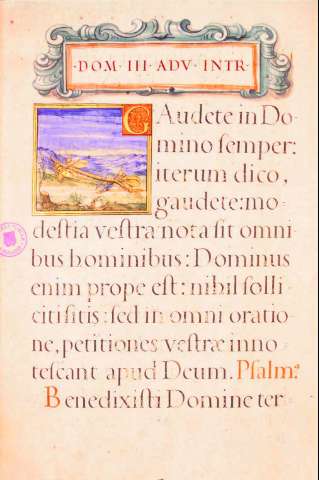 ·DOM·III·ADV·INTR·
GAudete in Do-
mino ſemper:
iterum dico,
gaudete: mo-
deſtia veſtra nota ſit omni
bus hominibus: Dominus
enim prope eſt: nihil ſolli
citi ſitis: ſed in omni oratio-
ne, petitiones veſtræ inno
teſcant apud Deum. Pſalm?
Benedixiſti Domine ter-